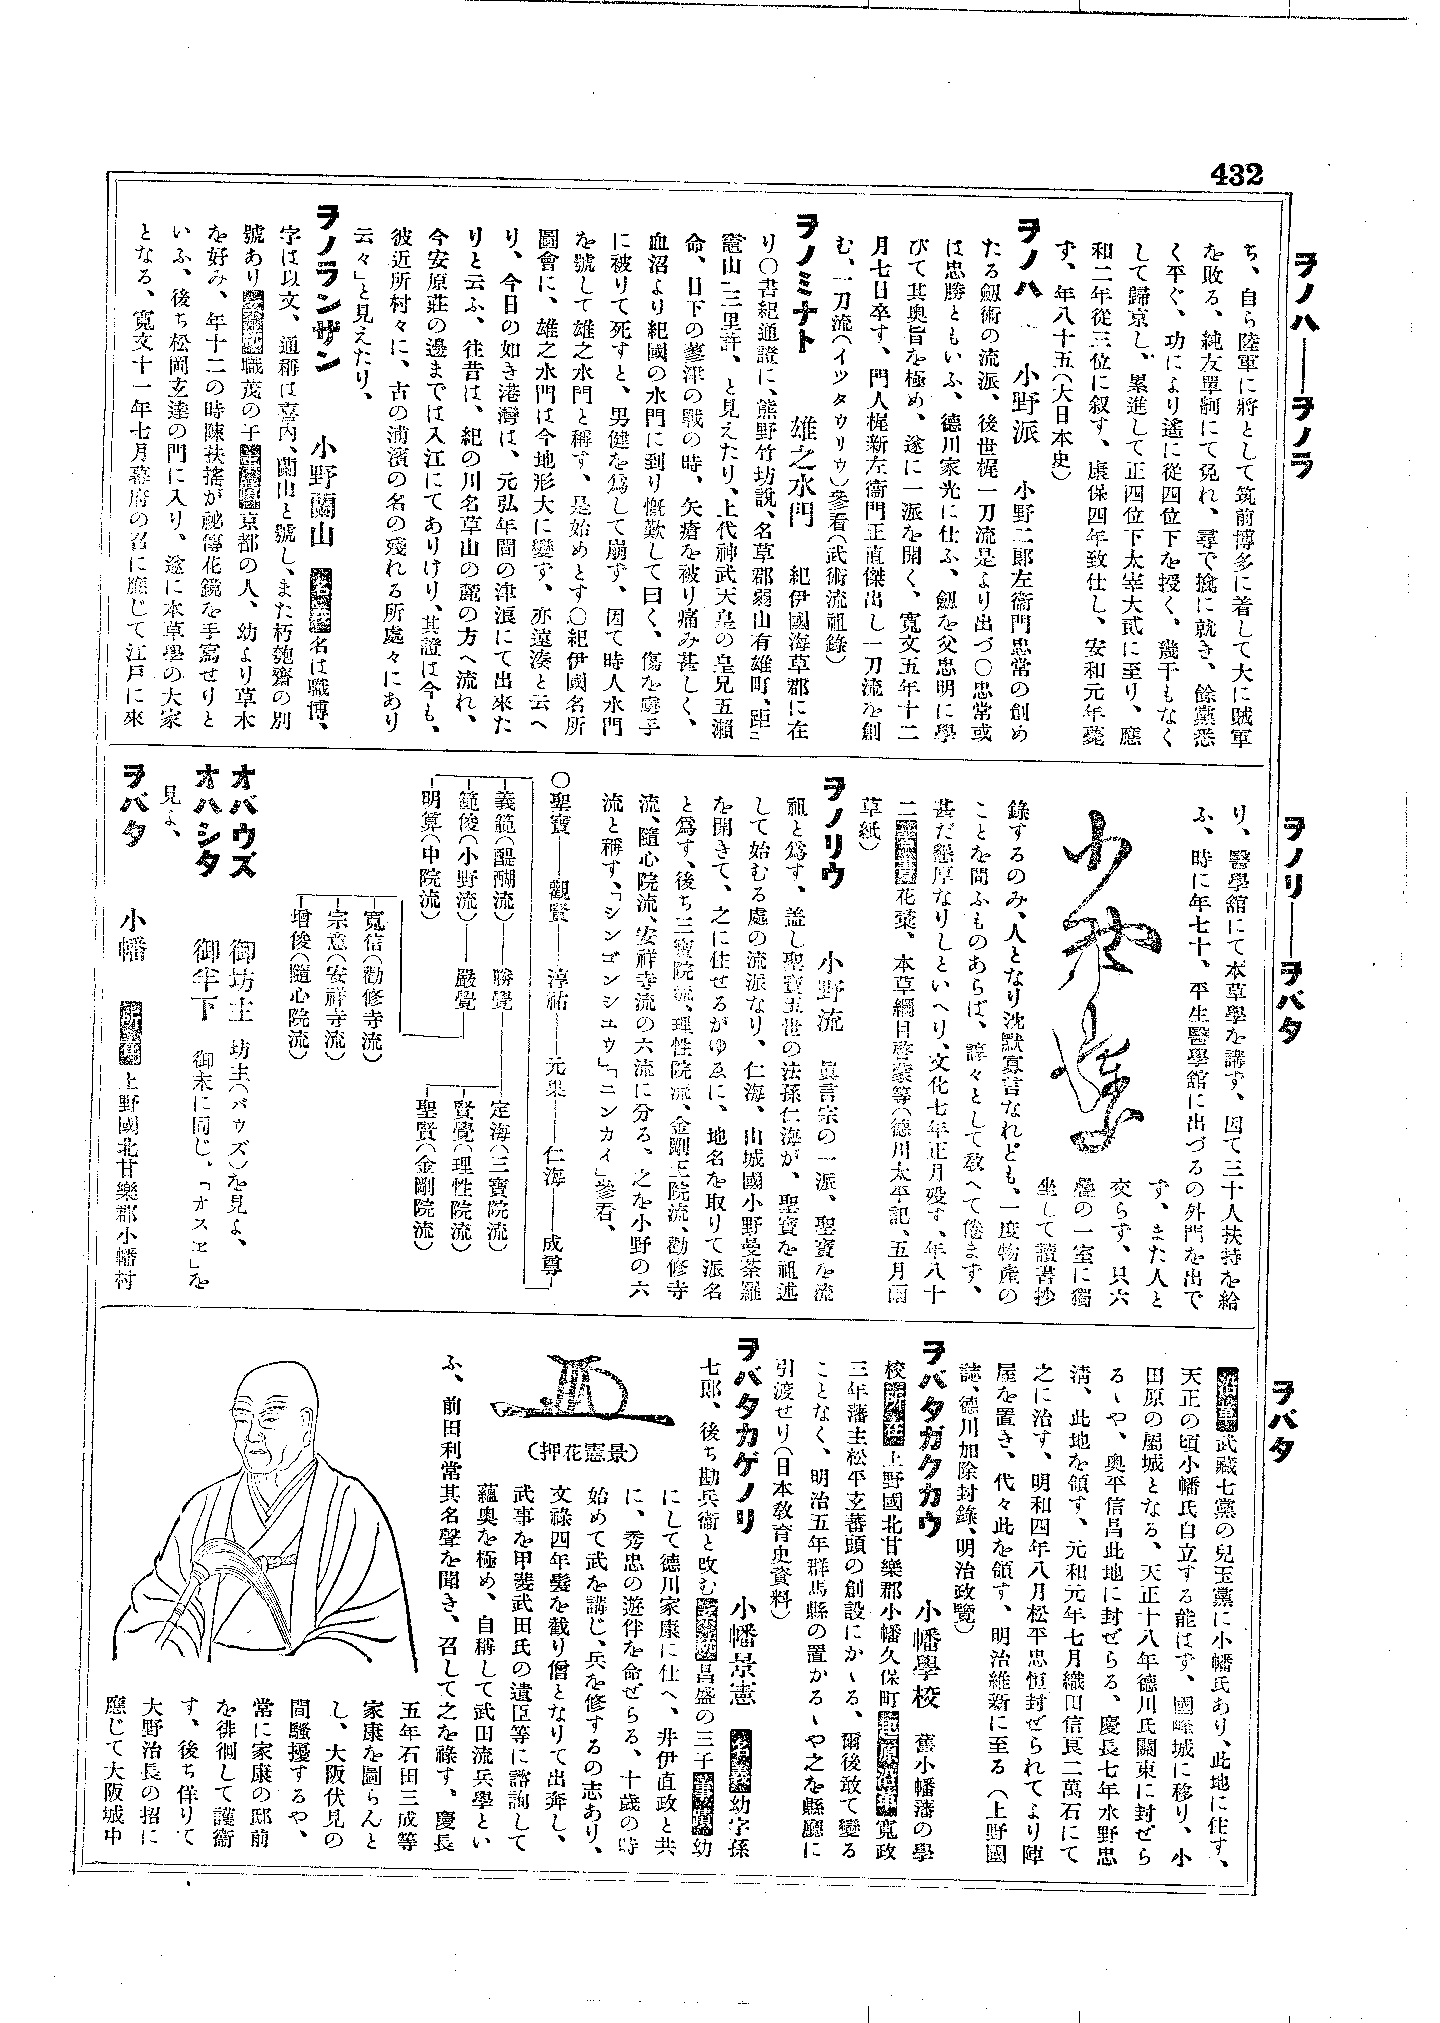 432
ヲノハ——ヲノラ
ち、自ら陸軍に將として筑前博多に着して大に賊軍
を敗る、純友單舸にて免れ、尋で擒に就き、餘黨悉
く平ぐ、功により遙に從四位下を授く、幾干もなく
して歸京し、累進して正四位下太宰大貳に至り、應
和二年從三位に叙す、康保四年致仕し、安和元年薨
ず、年八十五(大日本史)
ヲノハ 小野派 小野二郎左衞門忠常の創め
たる劔術の流派、後世梶一刀流是より出づ〇忠常或
は忠勝ともいふ、德川家光に仕ふ、劔を父忠明に學
びて其奧旨を極め、遂に一派を開く、寛文五年十二
月七日卒す、門人梶新左衞門正直傑出し一刀流を創
む、一刀流(イツタウリウ)參看(武術流祖錄)
ヲノミナト 雄之水門 紀伊國海草郡に在
り〇書紀通證に、熊野竹坊說、名草郡弱山有雄町、距
竈山二三里許、と見えたり、上代神武天皇の皇兄五瀨
命、日下の蓼津の戰の時、矢瘡を被り痛み甚しく、
血沼より紀國の水門に到り慨歎して曰く、傷を虜手
に被りて死すと、男健を爲して崩ず、因て時人水門
を號して雄之水門と稱す、是始めとす〇紀伊國名所
圖會に、雄之水門は今地形大に變ず、亦遠湊と云へ
り、今日の如き港灣は、元弘年間の津浪にて出來た
りと云ふ、往昔は、紀の川名草山の麓の方へ流れ、
今安原莊の邊までは入江にてありけり、其證は今も、
彼近所村々に、古の浦濱の名の殘れる所處々にあり
云々」と見えたり、
ヲノランザン 小野蘭山 名義 名は職博、
字は以文、通稱は喜內、蘭山と號し、また朽匏齋の別
號あり 職茂の子 京都の人、幼より草木
を好み、年十二の時陳扶搖が祕傳花鏡を手寫せりと
いふ、後ち松岡玄達の門に入り、遂に本草學の大家
となる、寛文十一年七月幕府の召に應じて江戶に來
ヲノリ——ヲバタ
り、醫學館にて本草學を講ず、因て三十人扶持を給
ふ、時に年七十、平生醫學館に出づるの外門を出で
ず、また人と
交らず、只六
疊の一室に獨
坐して讀書抄
錄するのみ、人となり沈默寡言なれども、一度物產の
ことを問ふものあらば、諄々として敎へて倦まず、
甚だ懇厚なりしといへり、文化七年正月歿す、年八十
二 花彙、本草綱目啓蒙等(德川太平記、五月雨
草紙)
ヲノリウ 小野流 眞言宗の一派、聖寶を流
祖と爲す、蓋し聖寶五世の法孫仁海が、聖寶を祖述
して始むる處の流派なり、仁海、山城國小野曼荼羅
を開きて、之に住せるがゆゑに、地名を取りて派名
と爲す、後ち三寶院流、理性院流、金剛王院流、勸修寺
流、隨心院流、安祥寺流の六流に分る、之を小野の六
流と稱す、「シンゴンシユウ」「ニンカイ」參看、
〇聖寶——觀賢——淳祐——元杲——仁海——成尊
義範(醍醐流)——勝覺
範俊(小野流)——嚴覺
明算(中院流)
定海(三寶院流)
賢覺(理性院流)
聖賢(金剛院流)
寬信(勸修寺流)
宗意(安祥寺流)
增俊(隨心院流)
オバウズ 御坊主 坊主(バウズ)を見よ、
オハシタ 御半下 御末に同じ、「オスヱ」を
見よ、
ヲバタ 小幡 上野國北甘樂郡小幡村
ヲバタ
沿革 武藏七黨の兒玉黨に小幡氏あり、此地に住す、
天正の頃小幡氏自立する能はず、國峰城に移り、小
田原の屬城となる、天正十八年德川氏關東に封ぜら
るゝや、奥平信昌此地に封ぜらる、慶長七年水野忠
淸、此地を領す、元和元年七月織田信良二萬石にて
之に治す、明和四年八月松平忠恒封ぜられてより陣
屋を置き、代々此を領す、明治維新に至る(上野國
誌、德川加除封錄、明治政覽)
ヲバタガクカウ 小幡學校 舊小幡藩の學
校 所在 上野國北甘樂郡小幡久保町 起原沿革 寬政
三年藩主松平玄蕃頭の創設にかゝる、爾後敢て變る
ことなく、明治五年群馬縣の置かるゝや之を縣廳に
引渡せり(日本敎育史資料)
ヲバタカゲノリ 小幡景憲 名義 幼字孫
七郎、後ち勘兵衞と改む 昌盛の三子 事蹟 幼
にして德川家康に仕へ、井伊直政と共
に、秀忠の遊伴を命ぜらる、十歲の時
始めて武を講じ、兵を修するの志あり、
文祿四年髮を截り僧となりて出奔し、
武事を甲斐武田氏の遺臣等に諮詢して
蘊奥を極め、自稱して武田流兵學とい
ふ、前田利常其名聲を聞き、召して之を祿す、慶長
五年石田三成等
家康を圖らんと
し、大阪伏見の
間騷擾するや、
常に家康の邸前
を徘徊して護衞
す、後ち佯りて
大野治長の招に
應じて大阪城中
(押花憲景)